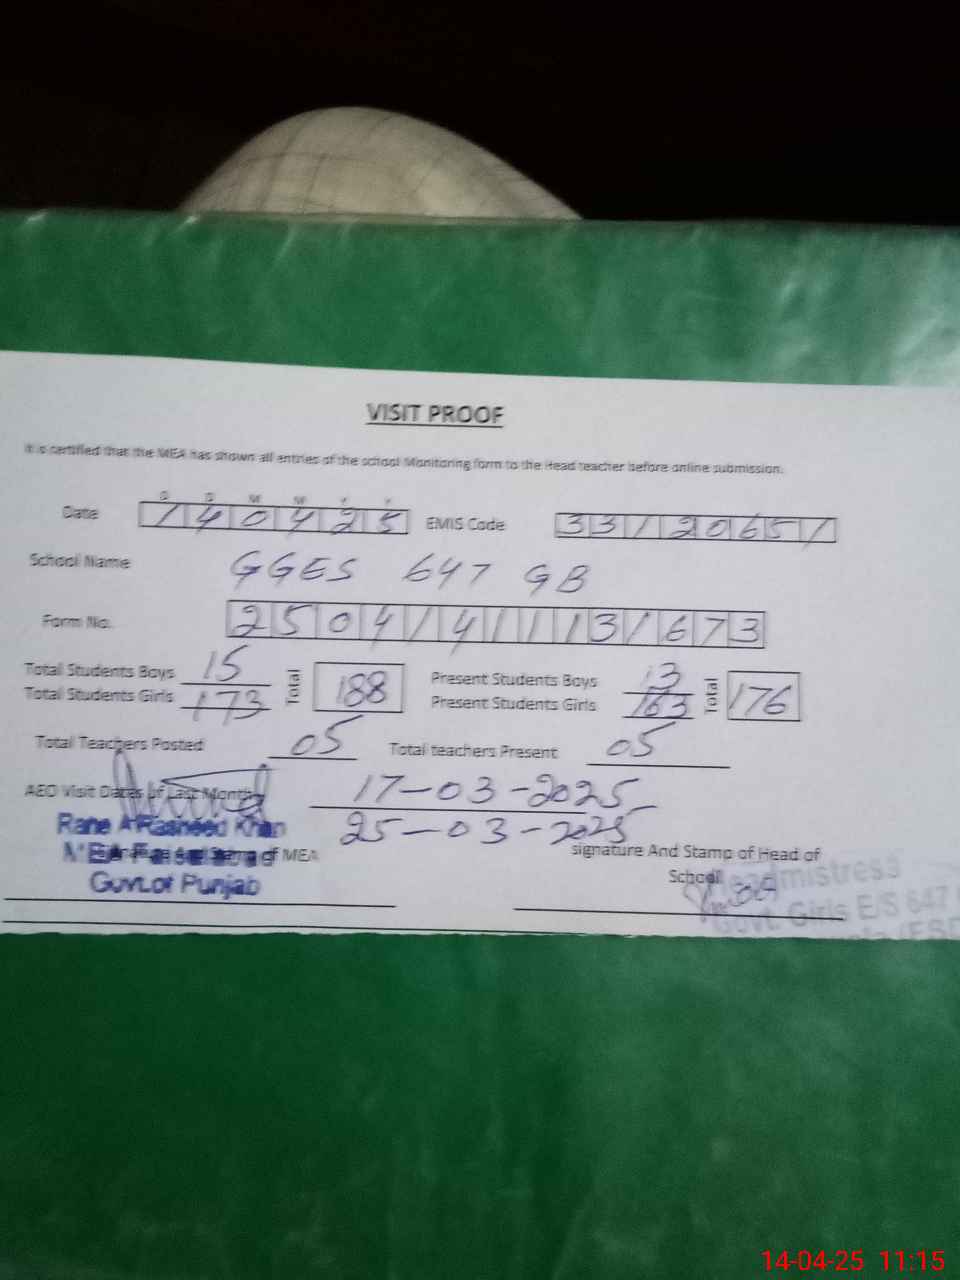 VISIT PROOF
It is certified that the MEA has shown all entries of the school Monitoring form to the Head teacher before online submission.
D D M M Y Y
Date 140425 EMIS Code 33120651
School Name GGES 647 GB
Form No. 25041411131673
Total Students Boys 15 Total 188 Present Students Boys 13 Total 176
Total Students Girls 173 Present Students Girls 163
Total Teachers Posted 05 Total teachers Present 05
AEO Visit Dates of Last Month 17-03-2025
25-03-2025
Rana A Rasheed Khan
MEA
of MEA
Govt.of Punjab
signature And Stamp of Head of
School
Headmistress
Govt. Girls E/S 647
14-04-25 11:15